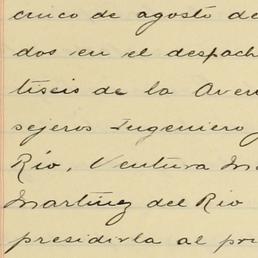 cinco de agosto de
dos en el despach
tiseis de la Aven
sejeros Ingeniero
Río, Ventura Ma
Martínez del Rio
presidirla al pri